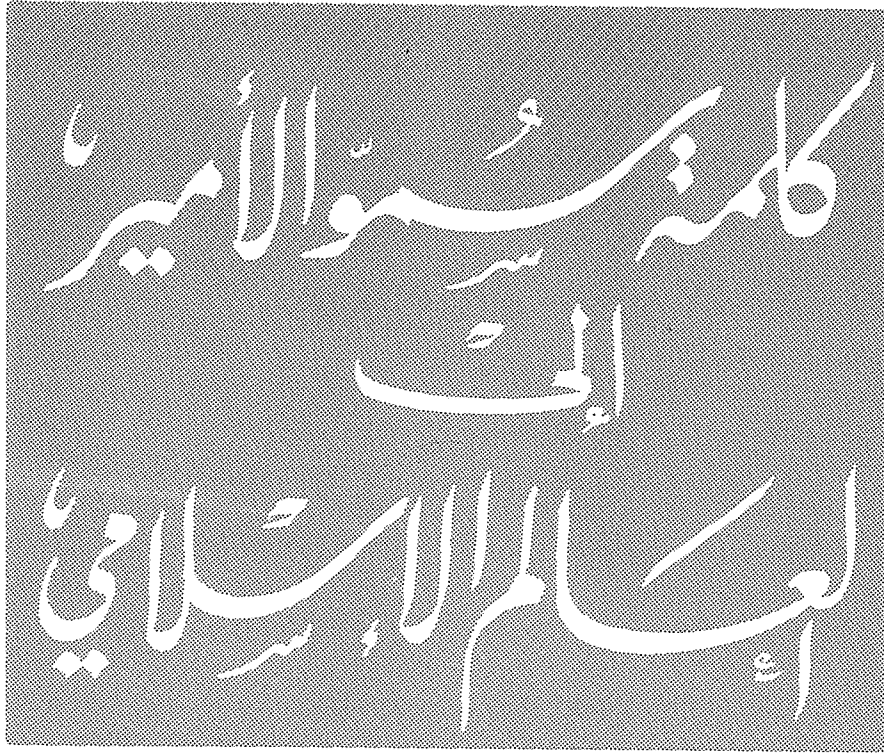 كلمة سُموّ الأمير
إلى
العالم الإسلامي